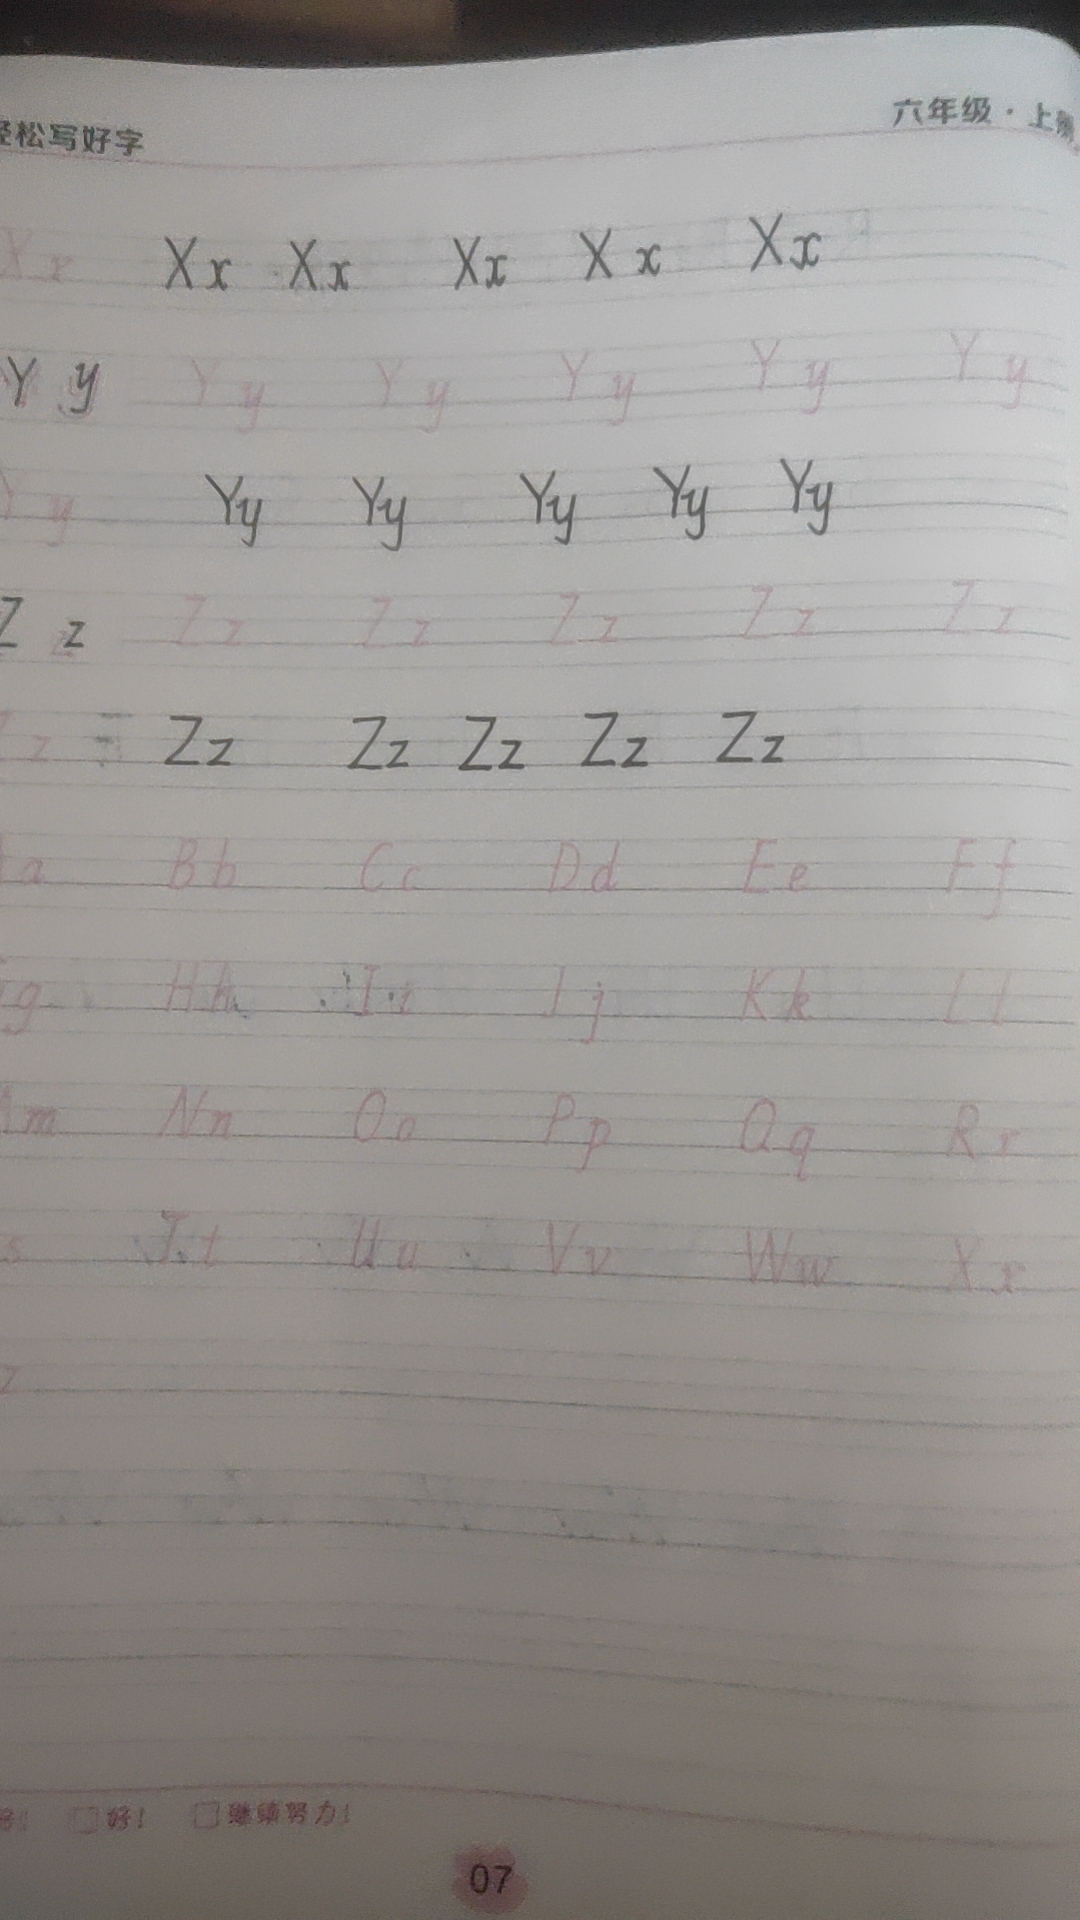 轻松写好字 六年级·上册
Xx Xx Xx Xx Xx Xx
Yy Yy Yy Yy Yy Yy
Yy Yy Yy Yy Yy Yy
Zz Zz Zz Zz Zz Zz
Zz Zz Zz Zz Zz Zz
a Bb Cc Dd Ee Ff
g Hh Ii Jj Kk Ll
Mm Nn Oo Pp Qq Rr
s Tt Uu Vv Ww Xx
z
好! 继续努力!
07